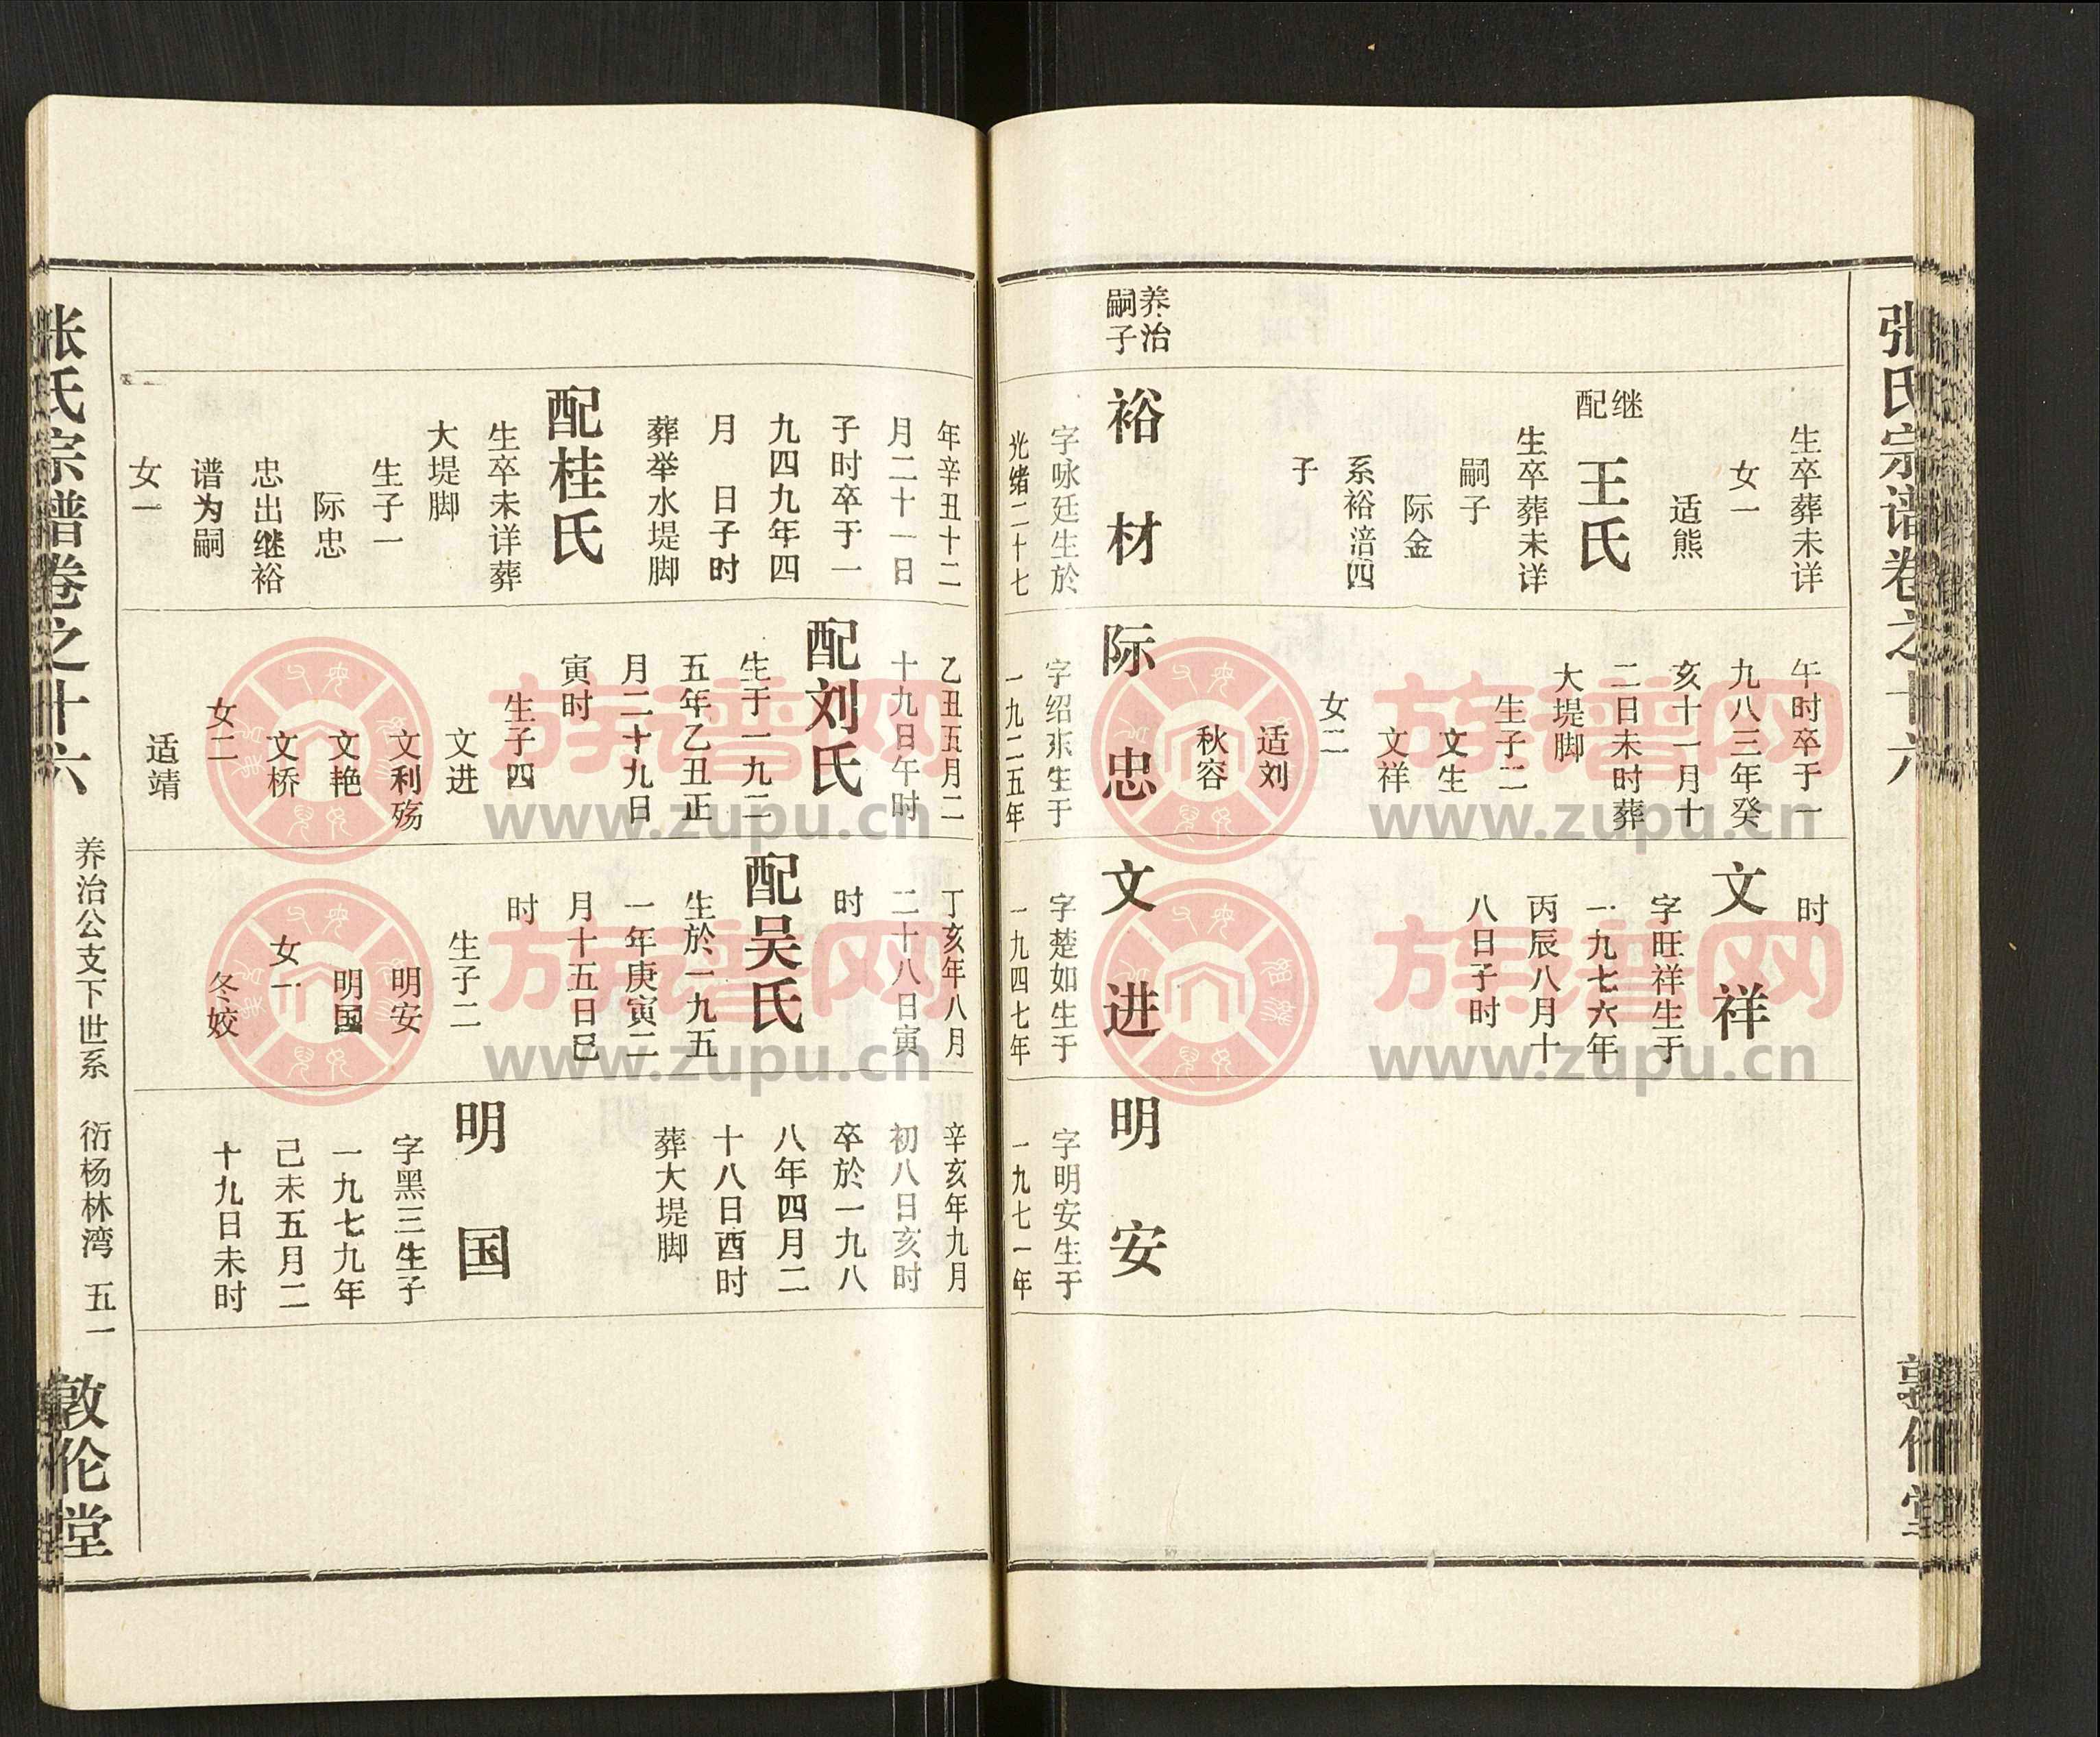 张氏宗谱卷之十六
敦伦堂
生卒葬未详
女一
适熊
继
配
王氏
生卒葬未详
嗣子
际金
系裕涪四
子
养治
嗣子
裕材
字咏廷生於
光绪二十七
午时卒于一
九八三年癸
亥十一月十
二日未时葬
大堤脚
生子二
文生
文祥
女二
适刘
秋容
际忠
字绍东生于
一九二五年
时
文祥
字旺祥生于
一九七六年
丙辰八月十
八日子时
文进
字楚如生于
一九四七年
明安
字明安生于
一九七一年
年辛丑十二
月二十一日
子时卒于一
九四九年四
月 日子时
葬举水堤脚
配桂氏
生卒未详葬
大堤脚
生子一
际忠
忠出继裕
谱为嗣
女一
乙丑五月二
十九日午时
配刘氏
生于一九二
五年乙丑正
月二十九日
寅时
生子四
文进
文利殇
文艳
文桥
女二
适靖
丁亥年八月
二十八日寅
时
配吴氏
生於一九五
一年庚寅二
月十五日巳
时
生子二
明安
明国
女一
冬姣
辛亥年九月
初八日亥时
卒於一九八
八年四月二
十八日酉时
葬大堤脚
明国
字黑三生子
一九七九年
己未五月二
十九日未时
张氏宗谱卷之十六
养治公支下世系 衍杨林湾 五一
敦伦堂
族谱网
www.zupu.cn
族谱网
www.zupu.cn
族谱网
www.zupu.cn
族谱网
www.zupu.cn